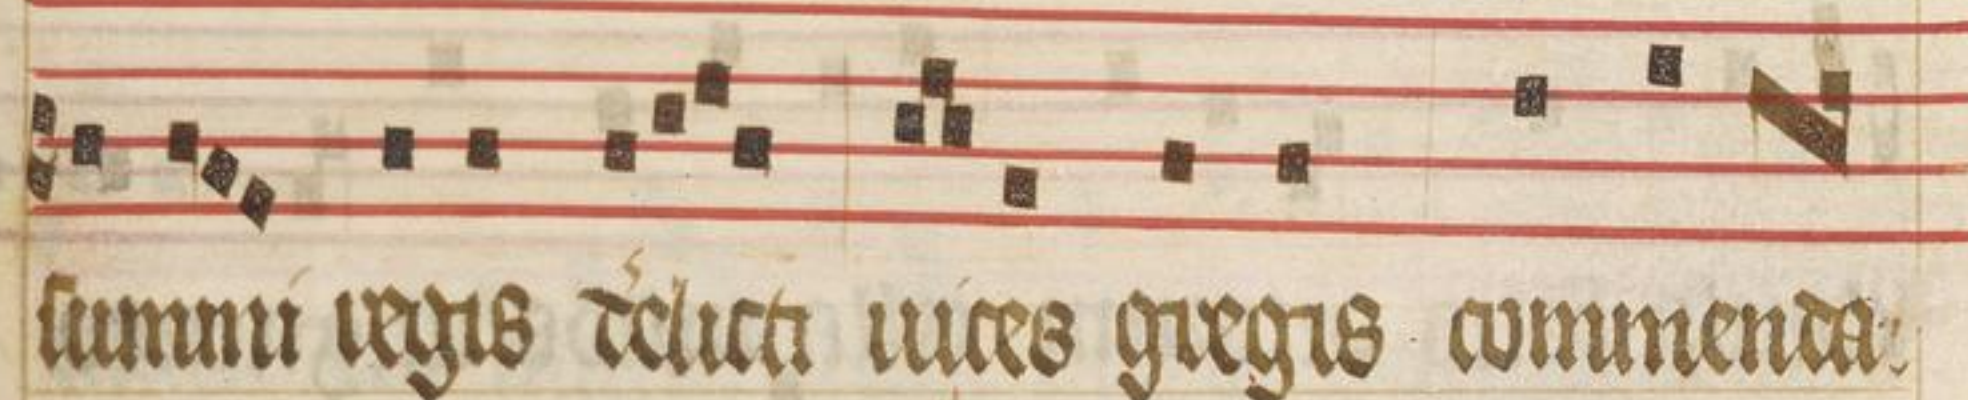 summi regis dĩlicti uices gregis commenda